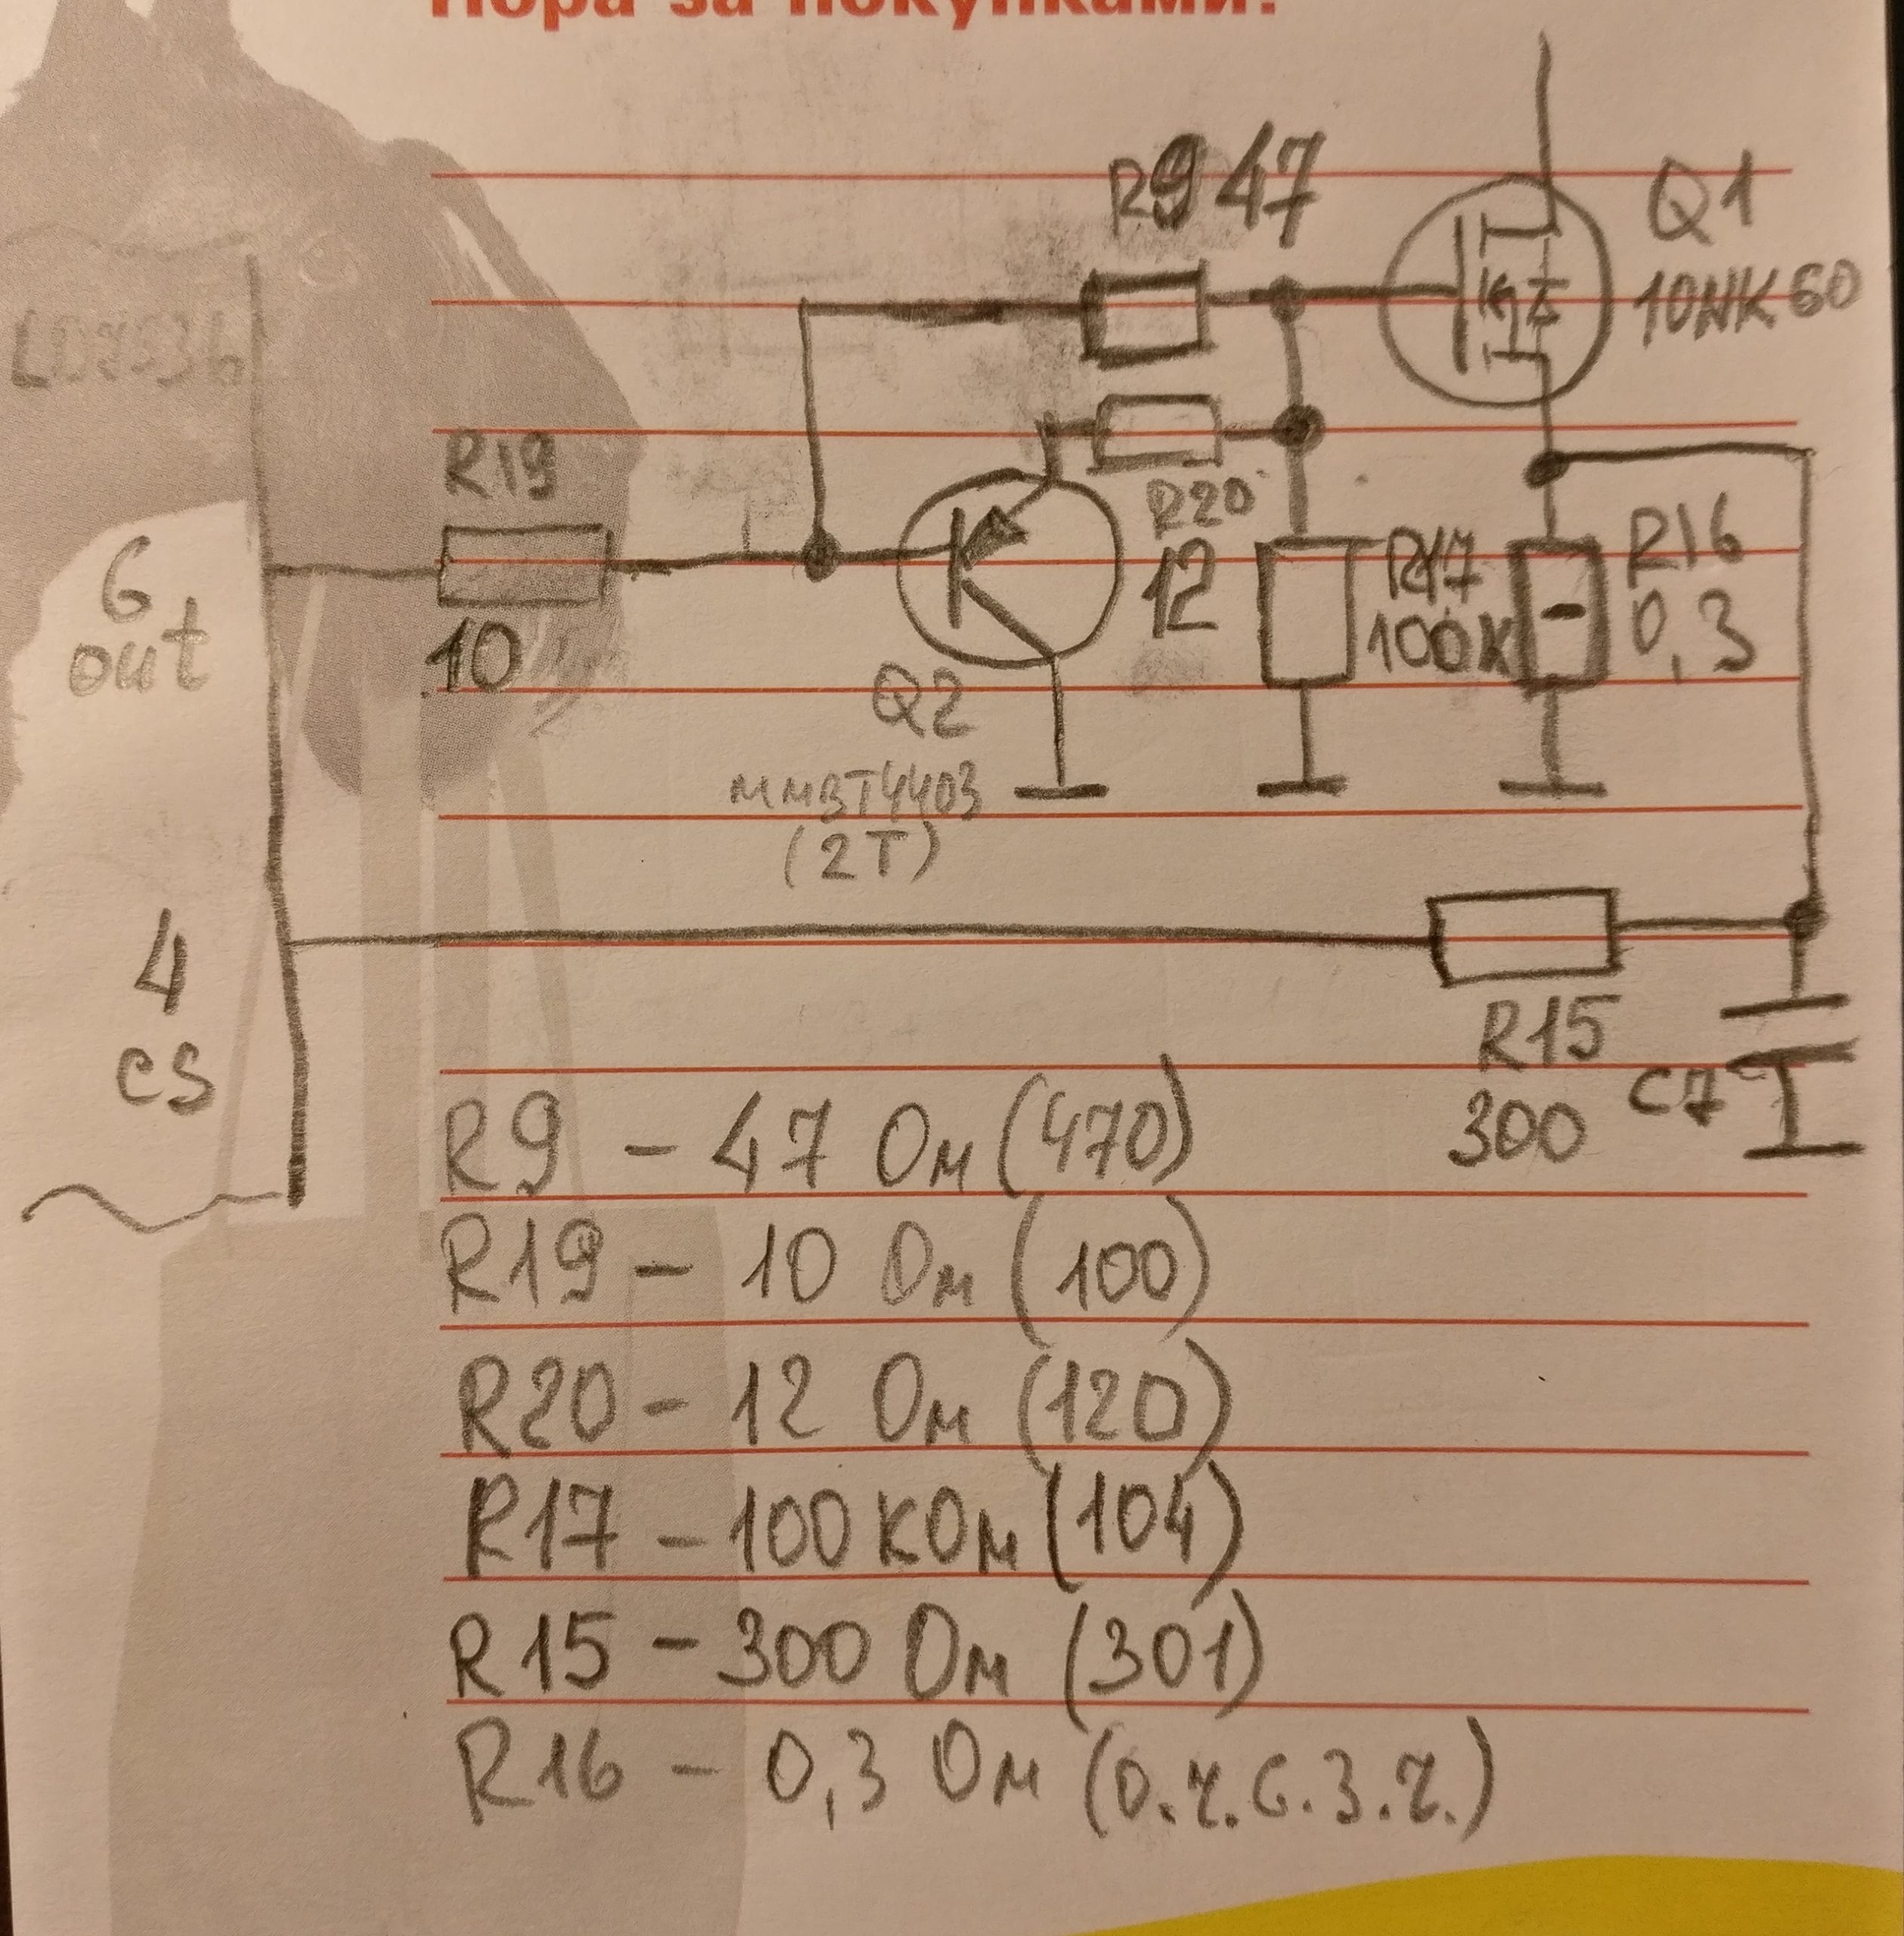 Пора за покупками!
R9 47
Q1
10NK60
LD7536
R19
10
R20
12
R17
100K
R16
0,3
6
out
Q2
MMBT4403
(2T)
4
cs
R15
300
C7
R9 - 47 Ом (470)
R19 - 10 Ом (100)
R20 - 12 Ом (120)
R17 - 100 кОм (104)
R15 - 300 Ом (301)
R16 - 0,3 Ом (о.ч.с.з.ч.)